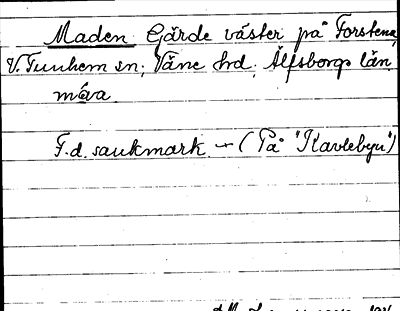 Maden Gärde väster på Forstena,
V. Tunhem sn; Väne hd; Älfsborgs län.
måa.
F.d. sankmark. – (På "Kavlebyn")